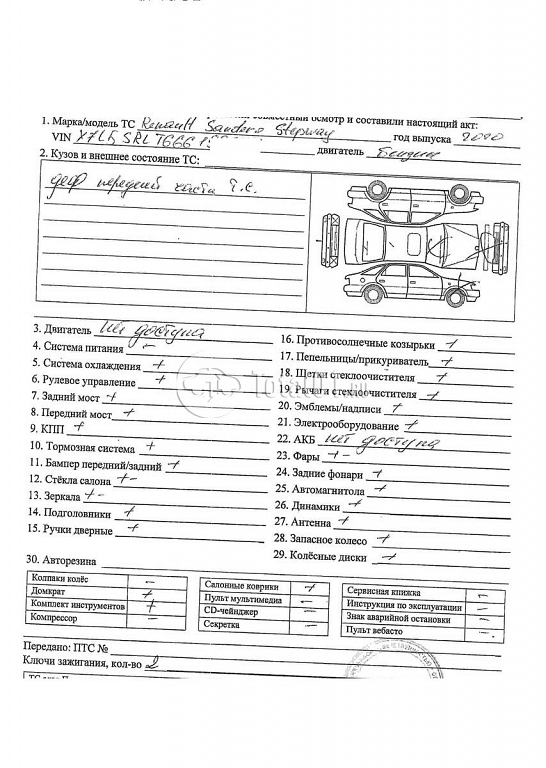 совместный осмотр и составили настоящий акт:
1. Марка/модель ТС Renault Sandero Stepway год выпуска 2010
VIN X7L5SRL7G66 двигатель Бензин
2. Кузов и внешнее состояние ТС:
деф передней части т.с.
3. Двигатель нет доступа
4. Система питания -
5. Система охлаждения +
6. Рулевое управление +
7. Задний мост +
8. Передний мост +
9. КПП +
10. Тормозная система +
11. Бампер передний/задний +
12. Стёкла салона + -
13. Зеркала + -
14. Подголовники +
15. Ручки дверные +
16. Противосолнечные козырьки +
17. Пепельницы/прикуриватель +
18. Щетки стеклоочистителя +
19. Рычаги стеклоочистителя +
20. Эмблемы/надписи +
21. Электрооборудование +
22. АКБ нет доступа
23. Фары + -
24. Задние фонари +
25. Автомагнитола +
26. Динамики +
27. Антенна +
28. Запасное колесо +
29. Колёсные диски +
Total01.ru
30. Авторезина
Колпаки колёс -
Домкрат +
Комплект инструментов +
Компрессор -
Салонные коврики +
Пульт мультимедиа -
CD-чейнджер -
Секретка -
Сервисная книжка -
Инструкция по эксплуатации -
Знак аварийной остановки -
Пульт вебасто -
Передано: ПТС №
Ключи зажигания, кол-во 2